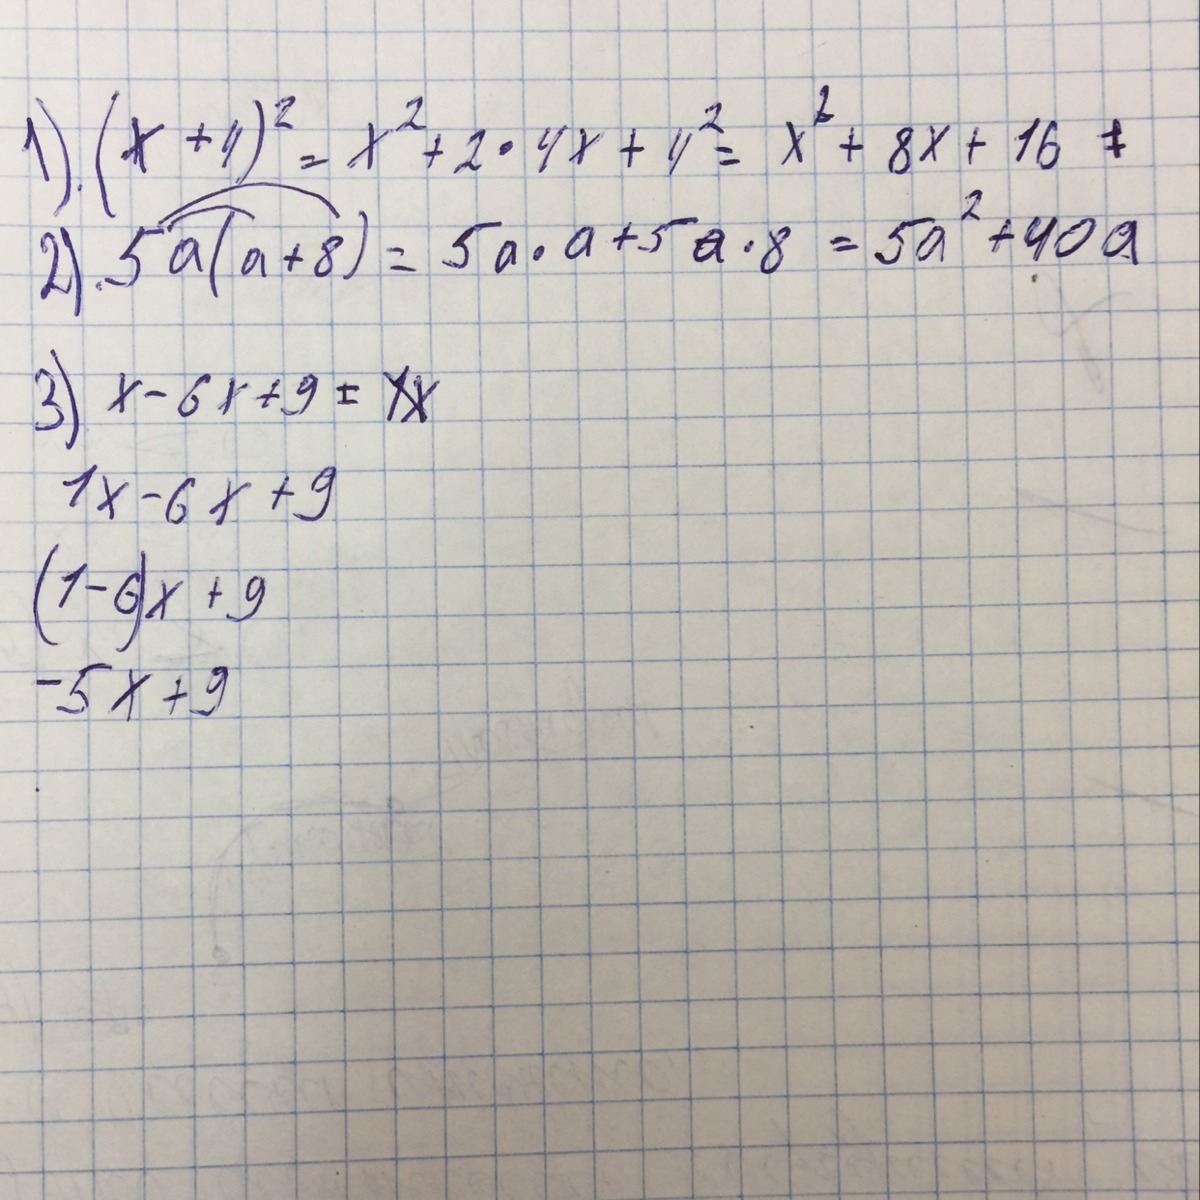 1). (x+4)² = x²+2·4x+4² = x²+8x+16
2). 5a(a+8) = 5a·a+5a·8 = 5a²+40a
3) x-6x+9=
1x-6x+9
(1-6)x+9
-5x+9